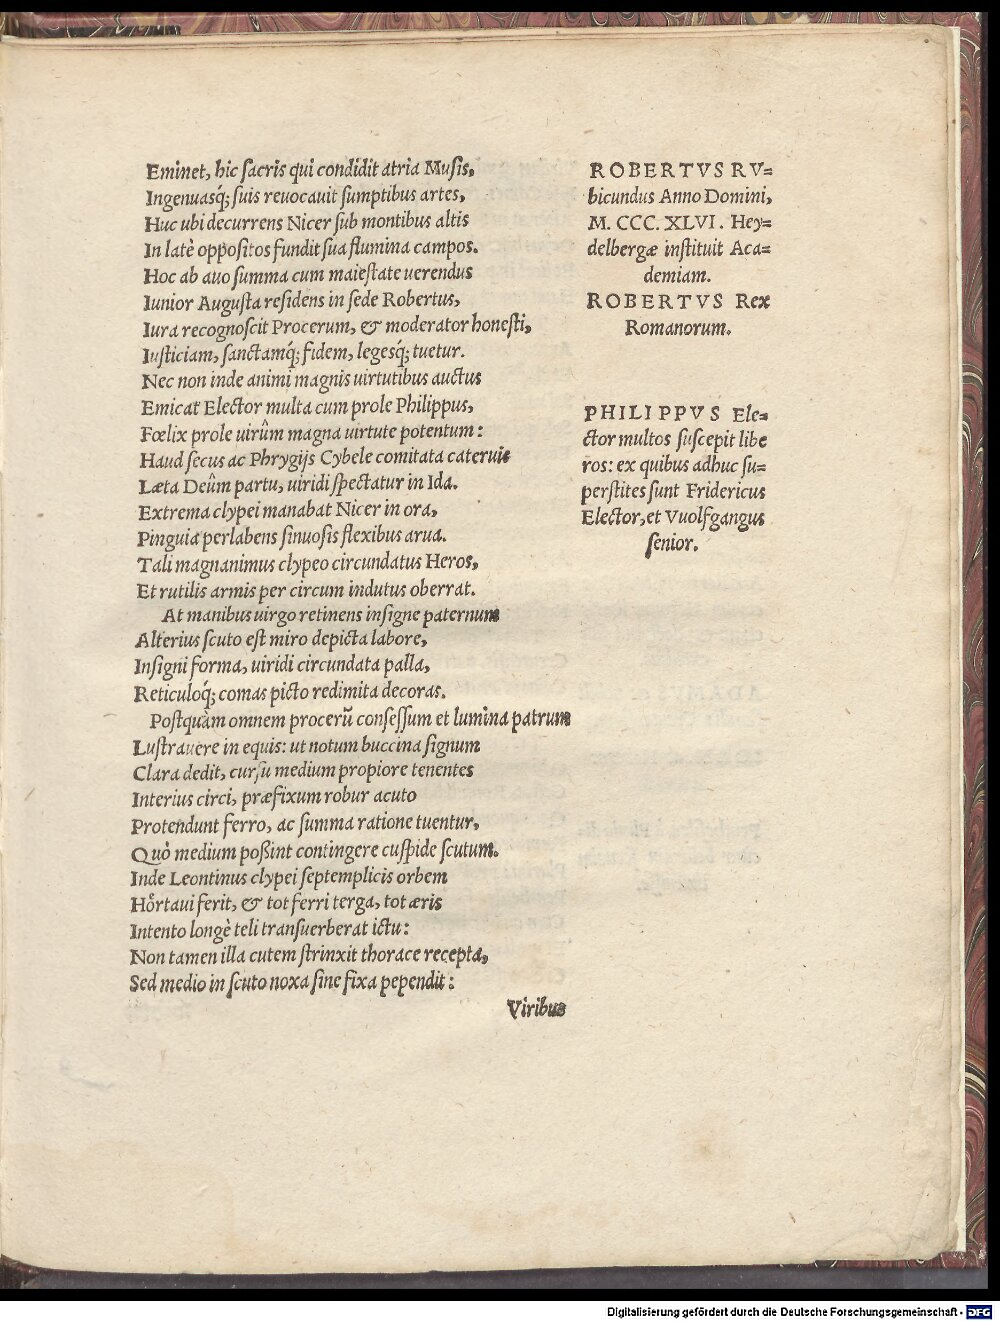 Eminet, hic ſacris qui condidit atria Muſis,
Ingenuasq́; ſuis reuocauit ſumptibus artes,
Huc ubi decurrens Nicer ſub montibus altis
In latè oppoſitos fundit ſua flumina campos.
Hoc ab auo ſumma cum maieſtate uerendus
Iunior Auguſta reſidens in ſede Robertus,
Iura recognoſcit Procerum, & moderator honeſti,
Iuſticiam, ſanctamq́; fidem, legesq́; tuetur.
Nec non inde animi magnis uirtutibus auctus
Emicat Elector multa cum prole Philippus,
Fœlix prole uirûm magna uirtute potentum:
Haud ſecus ac Phrygijs Cybele comitata cateruis
Læta Deûm partu, uiridi ſpectatur in Ida.
Extrema clypei manabat Nicer in ora,
Pinguia perlabens ſinuoſis flexibus arua.
Tali magnanimus clypeo circundatus Heros,
Et rutilis armis per circum indutus oberrat.
At manibus uirgo retinens inſigne paternum
Alterius ſcuto eſt miro depicta labore,
Inſigni forma, uiridi circundata palla,
Reticuloq́; comas picto redimita decoras.
Poſtquàm omnem procerũ conſeſſum et lumina patrum
Luſtrauere in equis: ut notum buccina ſignum
Clara dedit, curſu medium propiore tenentes
Interius circi, præfixum robur acuto
Protendunt ferro, ac ſumma ratione tuentur,
Quò medium poßint contingere cuſpide ſcutum.
Inde Leontinus clypei ſeptemplicis orbem
Hortaui ferit, & tot ferri terga, tot æris
Intento longè teli tranſuerberat ictu:
Non tamen illa cutem ſtrinxit thorace recepta,
Sed medio in ſcuto noxa ſine fixa pependit:
Viribus
ROBERTVS RV=
bicundus Anno Domini,
M. CCC. XLVI. Hey=
delbergæ inſtituit Aca=
demiam.
ROBERTVS Rex
Romanorum.
PHILIPPVS Ele=
ctor multos ſuſcepit libe
ros: ex quibus adhuc ſu=
perſtites ſunt Fridericus
Elector, et Vuolfgangus
ſenior.
Digitalisierung gefördert durch die Deutsche Forschungsgemeinschaft - DFG